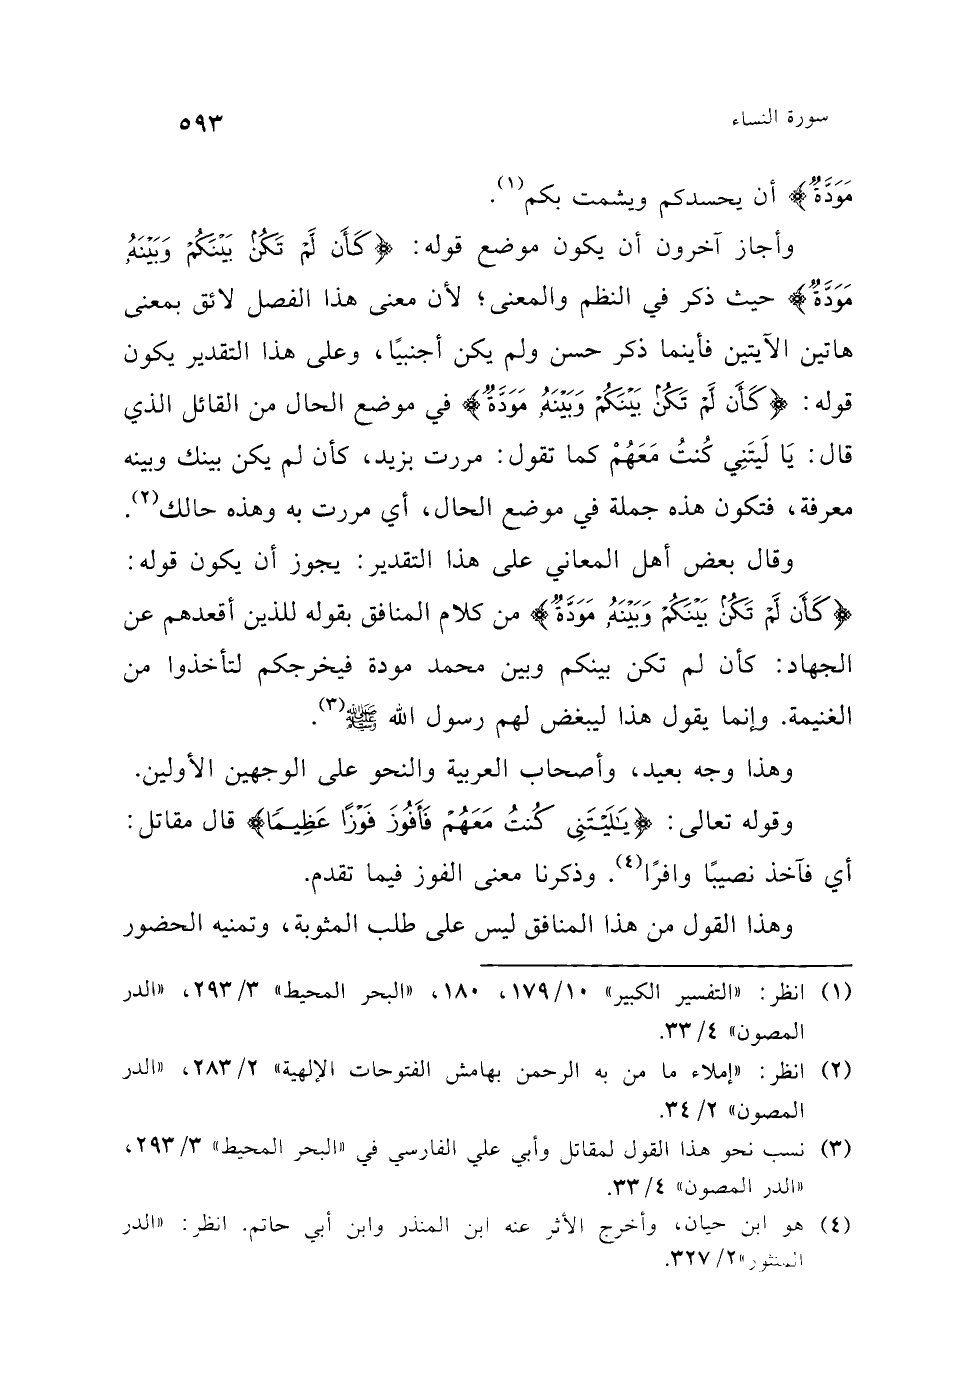 سورة النساء ٥٩٣
مَوَدَّةٌ﴾ أن يحسدكم ويشمت بكم(١).
وأجاز آخرون أن يكون موضع قوله: ﴿كَأَن لَّمْ تَكُنۢ بَيْنَكُمْ وَبَيْنَهُۥ
مَوَدَّةٌ﴾ حيث ذكر في النظم والمعنى؛ لأن معنى هذا الفصل لائق بمعنى
هاتين الآيتين فأينما ذكر حسن ولم يكن أجنبيًا، وعلى هذا التقدير يكون
قوله: ﴿كَأَن لَّمْ تَكُنۢ بَيْنَكُمْ وَبَيْنَهُۥ مَوَدَّةٌ﴾ في موضع الحال من القائل الذي
قال: يَا لَيتَنِي كُنتُ مَعَهُمْ كما تقول: مررت بزيد، كأن لم يكن بينك وبينه
معرفة، فتكون هذه جملة في موضع الحال، أي مررت به وهذه حالك(٢).
وقال بعض أهل المعاني على هذا التقدير: يجوز أن يكون قوله:
﴿كَأَن لَّمْ تَكُنۢ بَيْنَكُمْ وَبَيْنَهُۥ مَوَدَّةٌ﴾ من كلام المنافق بقوله للذين أقعدهم عن
الجهاد: كأن لم تكن بينكم وبين محمد مودة فيخرجكم لتأخذوا من
الغنيمة. وإنما يقول هذا ليبغض لهم رسول الله ﷺ(٣).
وهذا وجه بعيد، وأصحاب العربية والنحو على الوجهين الأولين.
وقوله تعالى: ﴿يَٰلَيْتَنِى كُنتُ مَعَهُمْ فَأَفُوزَ فَوْزًا عَظِيمًا﴾ قال مقاتل:
أي فآخذ نصيبًا وافرًا(٤). وذكرنا معنى الفوز فيما تقدم.
وهذا القول من هذا المنافق ليس على طلب المثوبة، وتمنيه الحضور
(١) انظر: «التفسير الكبير» ١٧٩/١٠، ١٨٠، «البحر المحيط» ٢٩٣/٣، «الدر
المصون» ٣٣/٤.
(٢) انظر: «إملاء ما من به الرحمن بهامش الفتوحات الإلهية» ٢٨٣/٢، «الدر
المصون» ٣٤/٢.
(٣) نسب نحو هذا القول لمقاتل وأبي علي الفارسي في «البحر المحيط» ٢٩٣/٣،
«الدر المصون» ٣٣/٤.
(٤) هو ابن حيان، وأخرج الأثر عنه ابن المنذر وابن أبي حاتم. انظر: «الدر
المنثور»٣٢٧/٢.